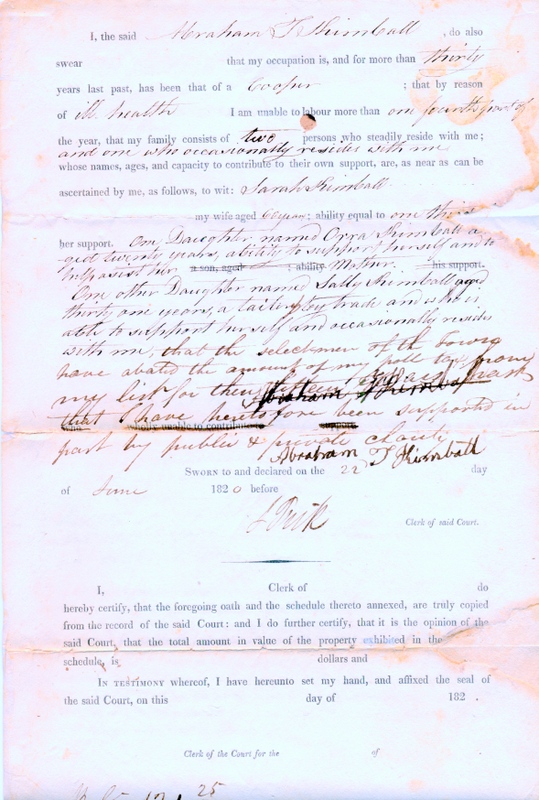 I, the said Abraham T Kimball , do also
swear that my occupation is, and for more than thirty
years last past, has been that of a Cooper ; that by reason
of ill health I am unable to labour more than one fourth part of
the year, that my family consists of two persons who steadily reside with me;
and one who occasionally resides with me
whose names, ages, and capacity to contribute to their own support, are, as near as can be
ascertained by me, as follows, to wit: Sarah Kimball
my wife aged 60 years; ability equal to one third
her support. One Daughter named Orra Kimball a
ged twenty years, ability to support herself and to
help assist her a son, aged ; ability Mother. his support.
One other Daughter named Sally Kimball aged
thirty one years, a tailer by trade and who is
able to support herself and occasionally resides
with me, that the selectmen of the Town
have abated the amount of my poll tax from
my list for the fifteen years past
Abraham T Kimball
that I have heretofore been supported in
wholly unable to contribute
part by public & private charity
Abraham T Kimball
SWORN to and declared on the 22 day
of June 1820 before
Clerk of said Court.
I, Clerk of do
hereby certify, that the foregoing oath and the schedule thereto annexed, are truly copied
from the record of the said Court: and I do further certify, that it is the opinion of the
said Court, that the total amount in value of the property exhibited in the
schedule, is dollars and
IN TESTIMONY whereof, I have hereunto set my hand, and affixed the seal of
the said Court, on this day of 182 .
Clerk of the Court for the of
25